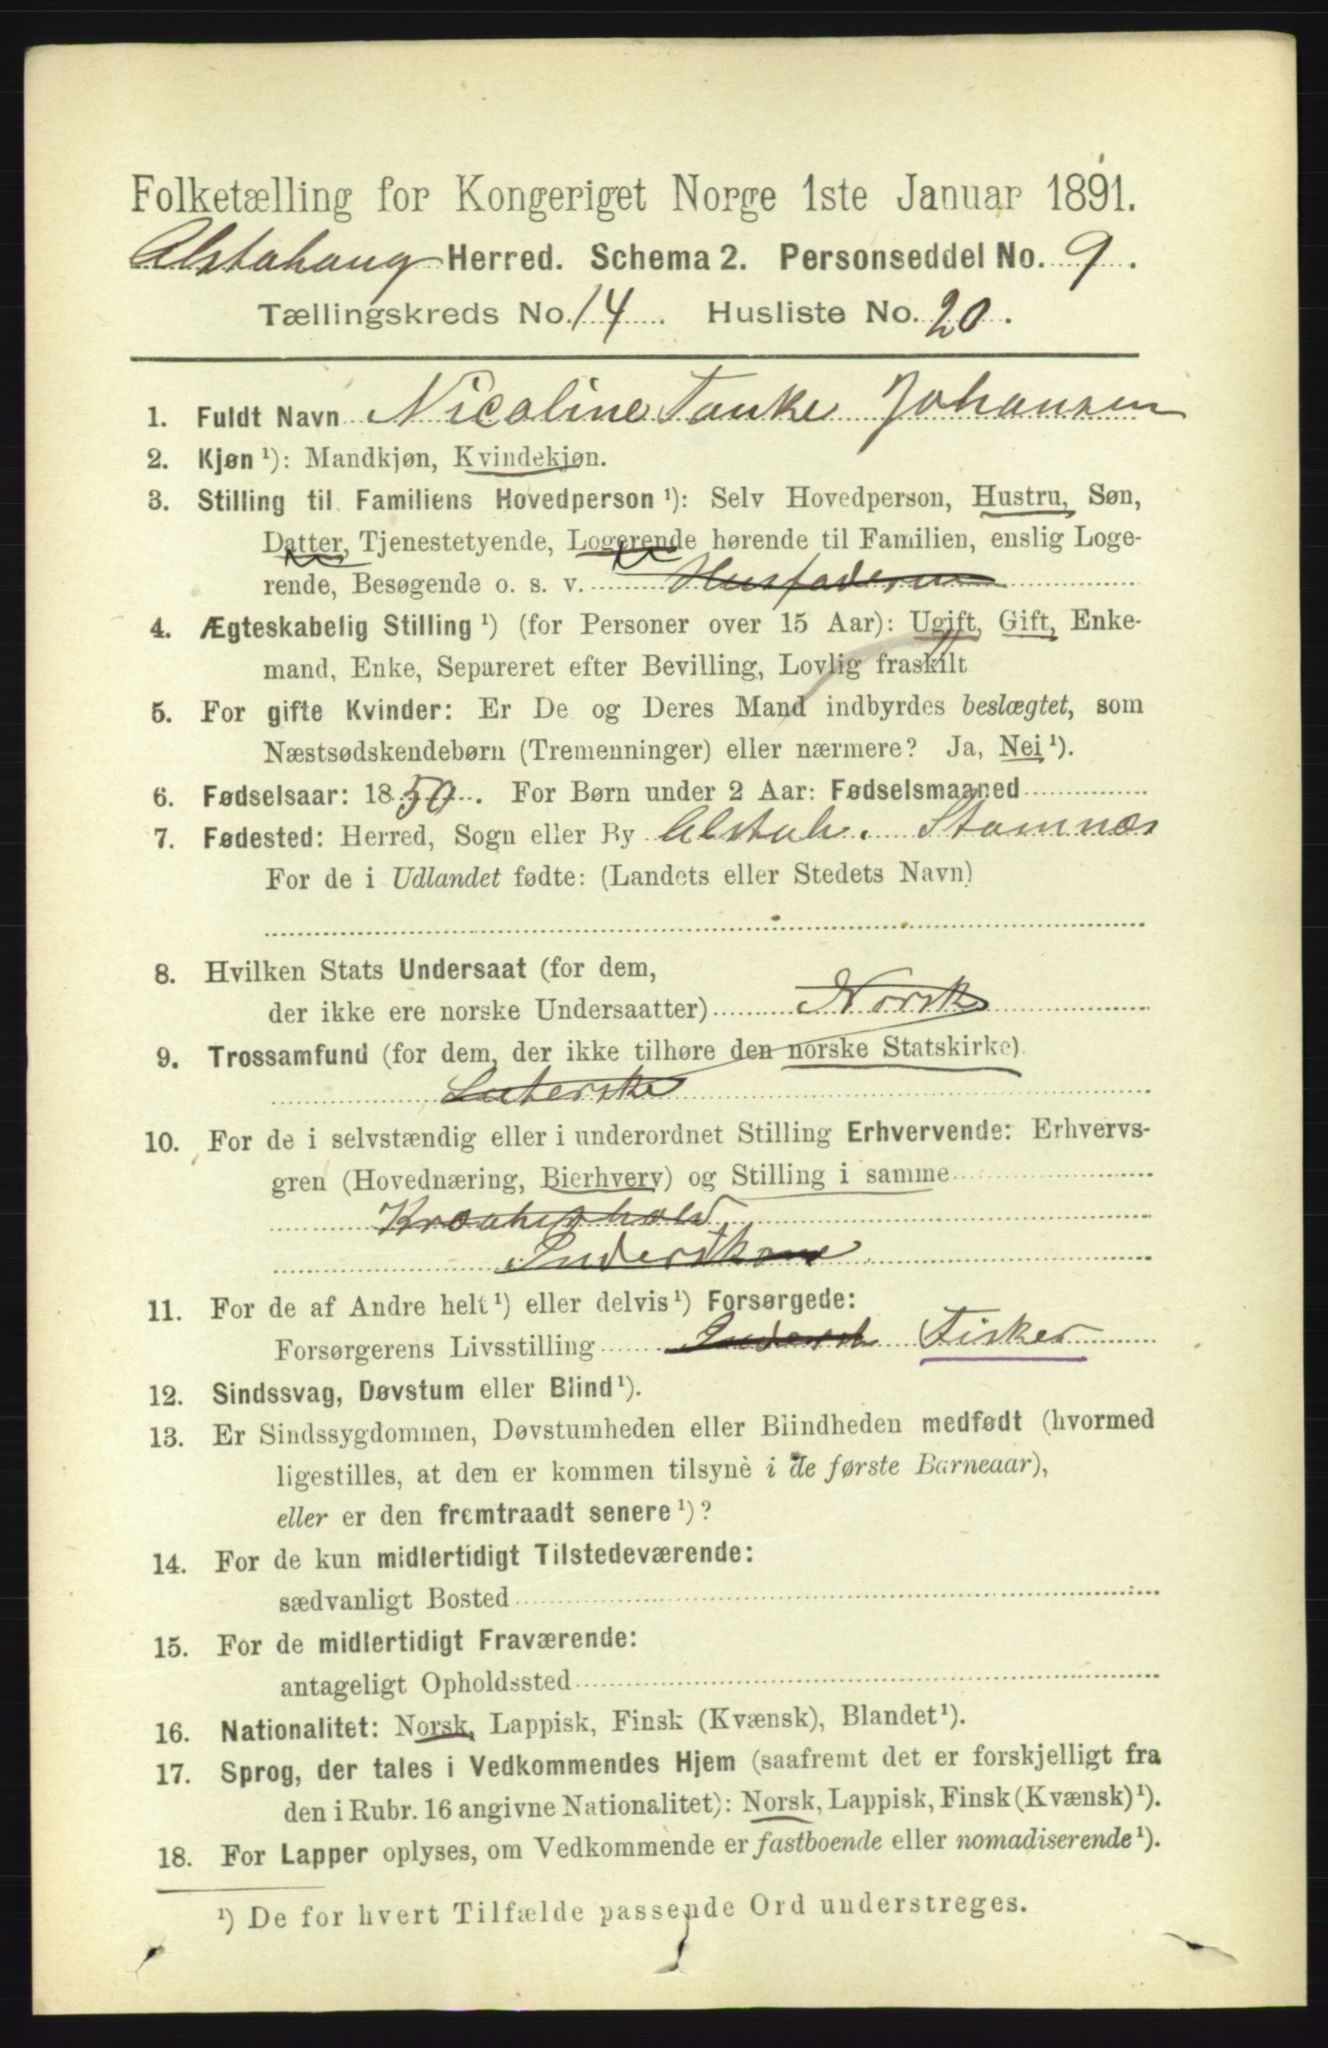 Folketælling for Kongeriget Norge 1ste Januar 1891.
Alstahaug Herred. Schema 2. Personseddel No. 9.
Tællingskreds No. 14. Husliste No. 20.
1. Fuldt Navn Nicoline Tanke Johansen
2. Kjøn ¹): Mandkjøn, Kvindekjøn.
3. Stilling til Familiens Hovedperson ¹): Selv Hovedperson, Hustru, Søn,
Datter, Tjenestetyende, Logerende hørende til Familien, enslig Loge-
rende, Besøgende o. s. v. Husfaderen
4. Ægteskabelig Stilling ¹) (for Personer over 15 Aar): Ugift, Gift, Enke-
mand, Enke, Separeret efter Bevilling, Lovlig fraskilt
5. For gifte Kvinder: Er De og Deres Mand indbyrdes beslægtet, som
Næstsødskendebørn (Tremenninger) eller nærmere? Ja, Nei ¹).
6. Fødselsaar: 1850. For Børn under 2 Aar: Fødselsmaaned
7. Fødested: Herred, Sogn eller By Alstah. Stamnæs
For de i Udlandet fødte: (Landets eller Stedets Navn)
8. Hvilken Stats Undersaat (for dem,
der ikke ere norske Undersaatter) Norsk
9. Trossamfund (for dem, der ikke tilhøre den norske Statskirke)
Luterske
10. For de i selvstændig eller i underordnet Stilling Erhvervende: Erhvervs-
gren (Hovednæring, Bierhverv) og Stilling i samme
Inderstkone
11. For de af Andre helt ¹) eller delvis ¹) Forsørgede:
Forsørgerens Livsstilling Inderst Fisker
12. Sindssvag, Døvstum eller Blind ¹).
13. Er Sindssygdommen, Døvstumheden eller Blindheden medfødt (hvormed
ligestilles, at den er kommen tilsynè i de første Barneaar),
eller er den fremtraadt senere ¹)?
14. For de kun midlertidigt Tilstedeværende:
sædvanligt Bosted
15. For de midlertidigt Fraværende:
antageligt Opholdssted
16. Nationalitet: Norsk, Lappisk, Finsk (Kvænsk), Blandet ¹).
17. Sprog, der tales i Vedkommendes Hjem (saafremt det er forskjelligt fra
den i Rubr. 16 angivne Nationalitet): Norsk, Lappisk, Finsk (Kvænsk) ¹).
18. For Lapper oplyses, om Vedkommende er fastboende eller nomadiserende ¹).
¹) De for hvert Tilfælde passende Ord understreges.